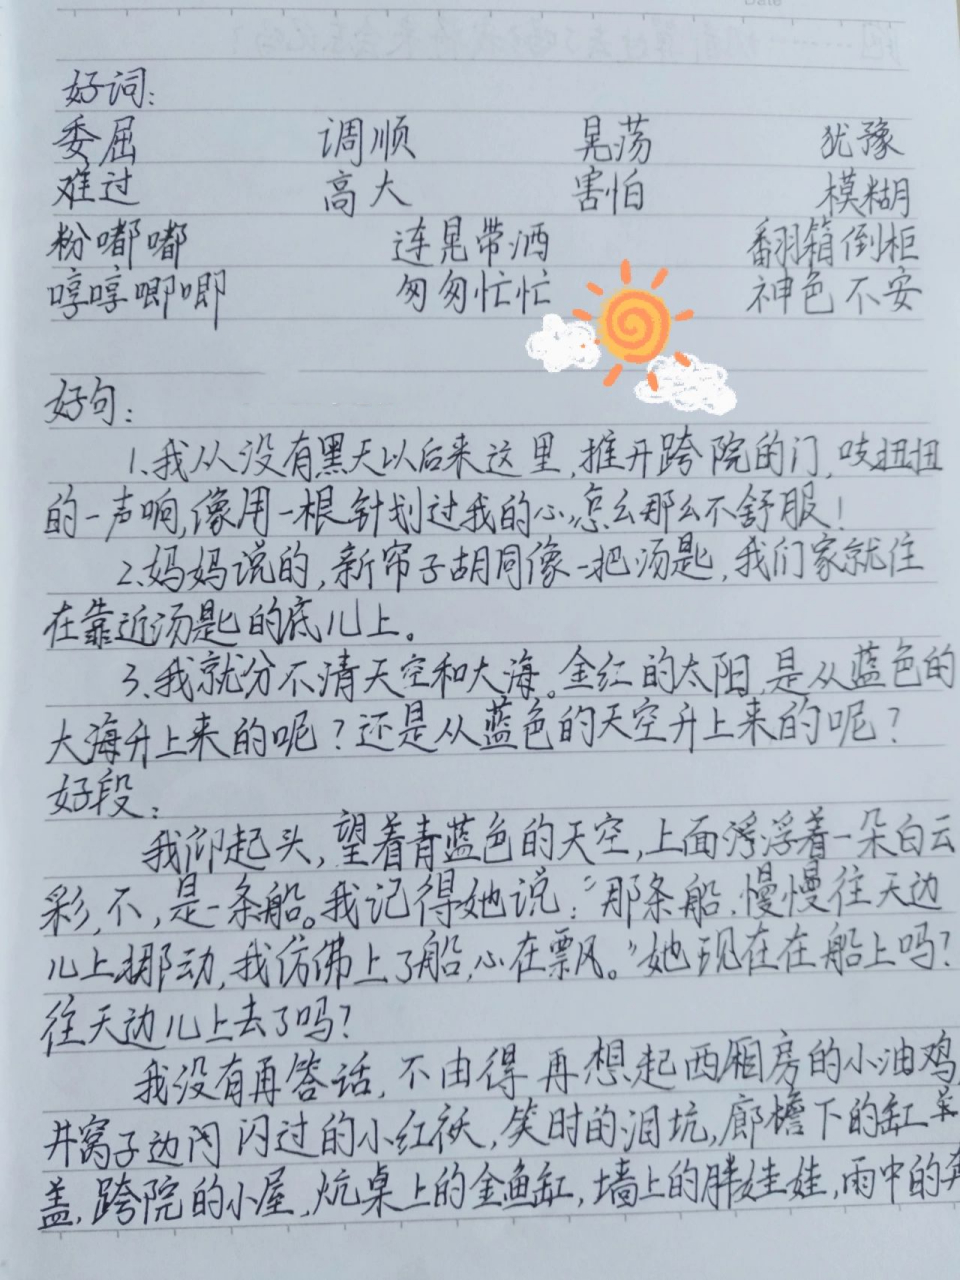 Date
好词：
委屈 调顺 晃荡 犹豫
难过 高大 害怕 模糊
粉嘟嘟 连晃带洒 翻箱倒柜
哼哼唧唧 匆匆忙忙 神色不安
好句：
1.我从没有黑天以后来这里,推开跨院的门,吱扭扭
的一声响,像用一根针划过我的心,怎么那么不舒服！
2.妈妈说的,新帘子胡同像一把汤匙,我们家就住
在靠近汤匙的底儿上。
3.我就分不清天空和大海。金红的太阳,是从蓝色的
大海升上来的呢？还是从蓝色的天空升上来的呢？
好段：
我仰起头,望着青蓝色的天空,上面浮着一朵白云
彩,不,是一条船。我记得她说："那条船,慢慢往天边
儿上挪动,我仿佛上了船,心在飘。"她现在在船上吗？
往天边儿上去了吗？
我没有再答话,不由得再想起西厢房的小油鸡,
井窝子边闪过的小红袄,笑时的泪坑,廊檐下的缸
盖,跨院的小屋,炕桌上的金鱼缸,墙上的胖娃娃,雨中的